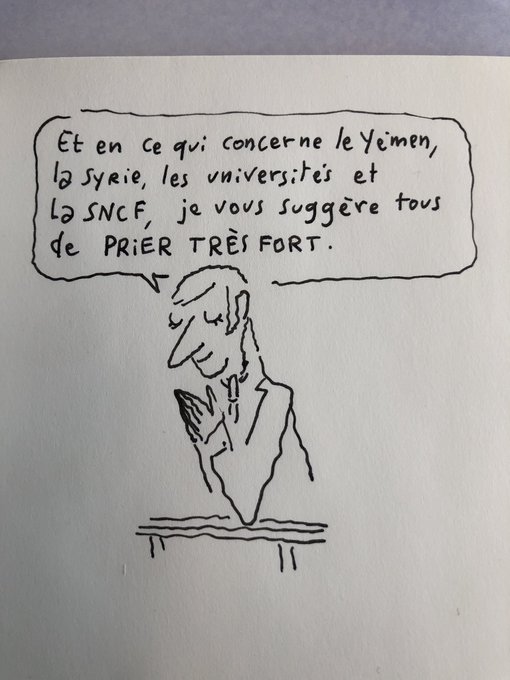 Et en ce qui concerne le Yémen,
la Syrie, les universités et
la SNCF, je vous suggère tous
de PRIER TRÈS FORT.